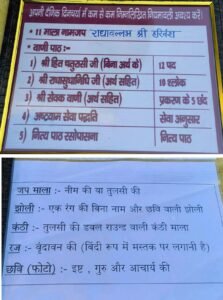 अपनी दैनिक दिनचर्या में कम से कम निम्नलिखित नियमावली अवश्य करें।
* 11 माला नामजप राधावल्लभ श्री हरिवंश
* वाणी पाठ:-
1) श्री हित चतुरासी जी (बिना अर्थ के) 12 पद
2) श्री राधासुधानिधि जी (अर्थ सहित) 10 श्लोक
3) श्री सेवक वाणी (अर्थ सहित) प्रकरण के 5 छंद
4) अष्टयाम सेवा पद्धति सेवा अनुसार
5) नित्य पाठ रसोपासना नित्य पाठ
जप माला :- नीम की या तुलसी की
झोली :- एक रंग की बिना नाम और छवि वाली झोली
कंठी :- तुलसी की डबल राउन्ड वाली कंठी माला
रज :- वृंदावन की (बिंदी रूप में मस्तक पर लगानी है)
छवि (फोटो) :- इष्ट, गुरु और आचार्य की